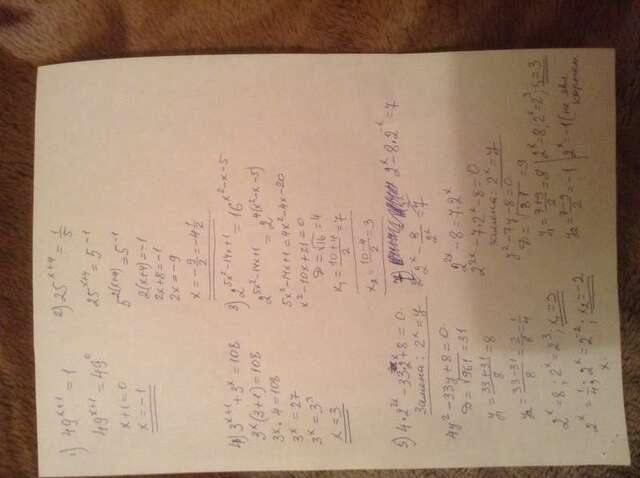 1) 49^{x+1} = 1
49^{x+1} = 49^0
x+1=0
x = -1
2) 25^{x+4} = 1/5
25^{x+4} = 5^{-1}
5^{2(x+4)} = 5^{-1}
2(x+4) = -1
2x+8 = -1
2x = -9
x = -9/2 = -4 1/2
4) 3^{x+1} + 3^x = 108
3^x (3+1) = 108
3^x · 4 = 108
3^x = 27
3^x = 3^3
x = 3
3) 2^{5x²-14x+1} = 16^{x²-x-5}
2^{5x²-14x+1} = 2^{4(x²-x-5)}
5x²-14x+1 = 4x²-4x-20
x²-10x+21 = 0
D = √16 = 4
x₁ = (10+4)/2 = 7
x₂ = (10-4)/2 = 3
5) 4·2^{2x} - 33·2^x + 8 = 0
Замена: 2^x = y
4y² - 33y + 8 = 0
D = √961 = 31
y₁ = (33+31)/8 = 8
y₂ = (33-31)/8 = 2/8 = 1/4
2^x = 8; 2^x = 2^3; x₁ = 3
2^x = 1/4; 2^x = 2^{-2}; x₂ = -2
7) 2^x - 8·2^{-x} = 7
2^x - 8/2^x = 7
2^{2x} - 8 = 7·2^x
2^{2x} - 7·2^x - 8 = 0
Замена: 2^x = y
y² - 7y - 8 = 0
D = √81 = 9
y₁ = (7+9)/2 = 8 | 2^x = 8; 2^x = 2^3; x = 3
y₂ = (7-9)/2 = -1 | 2^x = -1 (не явл.
корнем